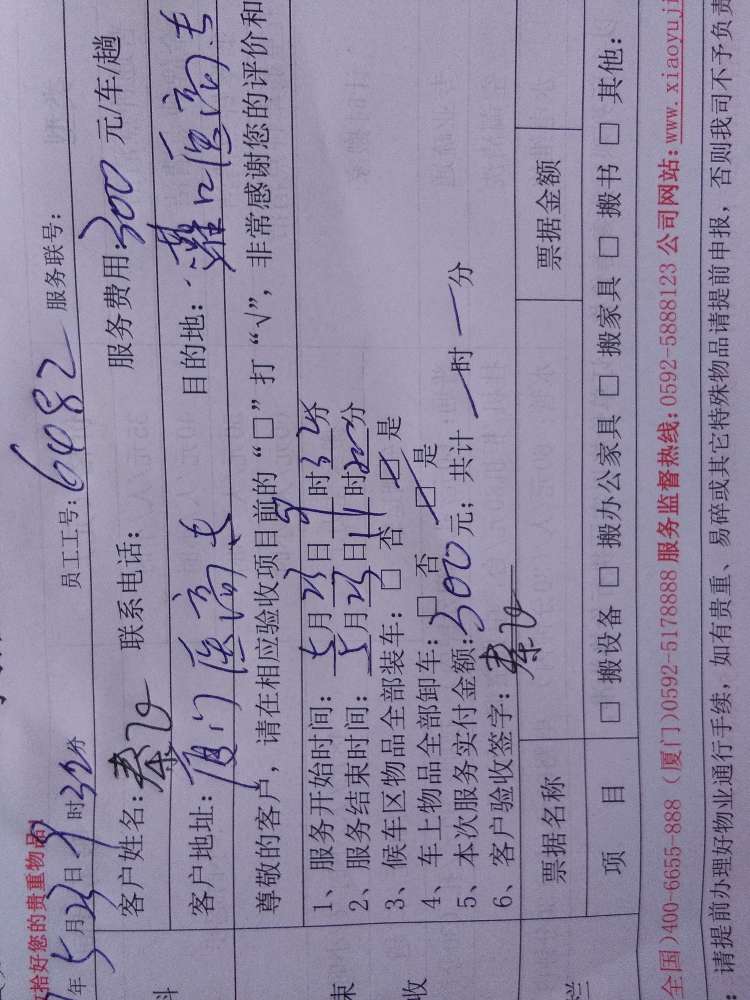 收拾好您的贵重物品！
年5月23日9时32分 员工工号：6482 服务联号：
客户姓名：秦飞 联系电话： 服务费用300元/车/趟
客户地址：厦门医高专 目的地：灌口医高专
尊敬的客户，请在相应验收项目前的“□”打“√”，非常感谢您的评价和
1、服务开始时间：5月23日9时32分
2、服务结束时间：5月23日11时20分
3、候车区物品全部装车：□ 否 ☑ 是
4、车上物品全部卸车：□ 否 ☑ 是
5、本次服务实付金额：300元；共计 一 时 一 分
6、客户验收签字：秦飞
票据名称 票据金额
项 目 □ 搬设备 □ 搬办公家具 □ 搬家具 □ 搬书 □ 其他：
全国)400-6655-888 （厦门)0592-5178888 服务监督热线：0592-5888123 公司网站：www.xiaoyuji
：请提前办理好物业通行手续，如有贵重、易碎或其它特殊物品请提前申报，否则我司不予负责
料
束
收
栏